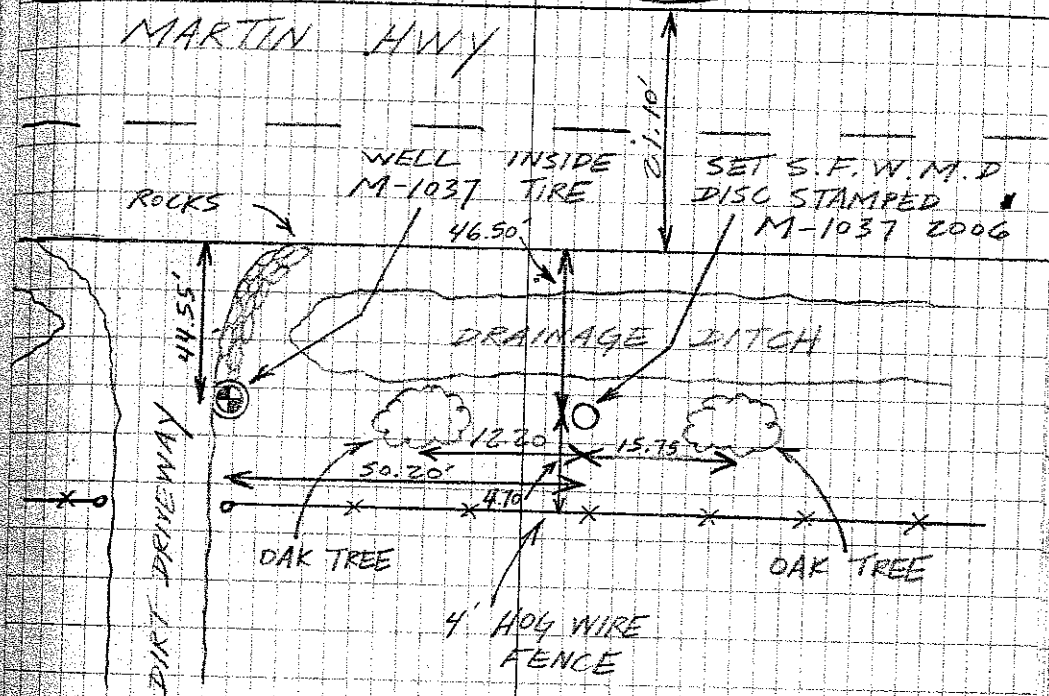 MARTIN HWY
21.10'
WELL INSIDE
M-1037 TIRE
SET S.F.W.M.D
DISC STAMPED
M-1037 2006
ROCKS
46.50'
44.55'
DRAINAGE DITCH
12.20
15.75
50.20'
4.70
OAK TREE
OAK TREE
DIRT DRIVEWAY
4' HOG WIRE
FENCE